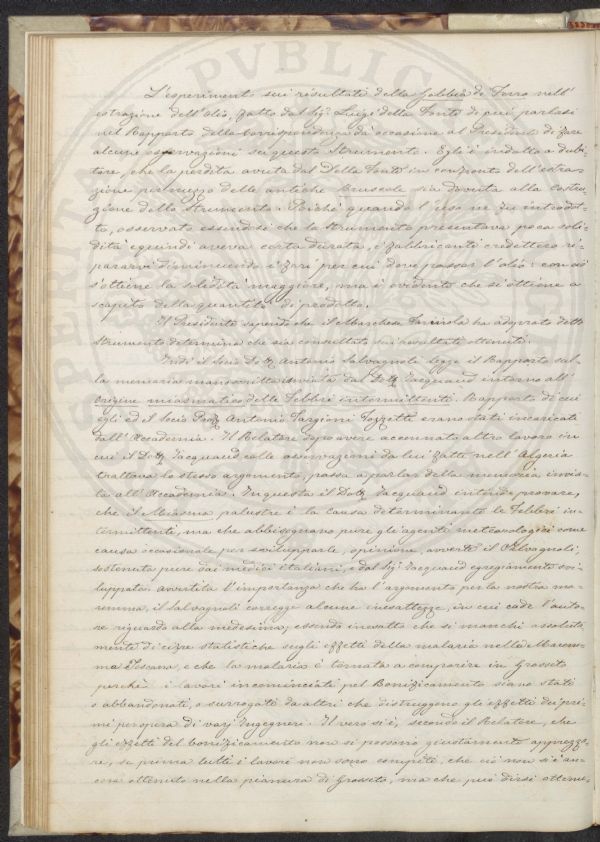 L'esperimento sui risultati della Gabbia di Ferro nell'
estrazione dell'olio, fatto dal Sig. Luigi della Fonte di cui parlasi
nel Rapporto della Corrispondenza dà occasione al Presidente di fare
alcune osservazioni su questo Strumento. Egli è indotto a dubi-
tare, che la perdita avuta dal Della Fonte in confronto dell'estra-
zione per mezzo delle antiche Bruscole sia dovuta alla costru-
zione dello Strumento. Poichè quando l'uso ne fu introdot-
to, osservato essendosi che lo strumento presentava poca soli-
dità e quindi aveva corta durata, i fabbricanti credettero ri-
pararvi diminuendo i fori per cui deve passar l'olio: con ciò
s'ottiene la solidità maggiore, ma è evidente che si ottiene a
scapito della quantità di prodotto.
Il Presidente sapendo che il Marchese ha adoprato detto
Strumento determina che sia consultato sui resultati ottenuti.
Indi il Socio Dott. Antonio Salvagnoli legge il Rapporto sul-
la memoria manoscritta inviata dal Dott. Jacquaud intorno all'
origine miasmatica delle Febbri intermittenti. Rapporto di cui
egli ed il Socio Prof. Antonio Targioni Tozzetti erano stati incaricati
dall'Accademia. Il Relatore dopo avere accennato altro lavoro in
cui il Dott. Jacquaud colle osservazioni da lui fatte nell'Algeria
trattava lo stesso argomento, passa a parlar della memoria invia-
ta all'Accademia. In questa il Dott. Jacquaud intende provare,
che il Miasma palustre è la causa determinante le Febbri in-
termittenti, ma che abbisognano pure gli agenti meteorologici come
causa occasionale per svilupparle, opinione, avverte il Salvagnoli,
sostenuta pure dai medici italiani, e dal Sig. Jacquaud egregiamente svi-
luppata. Avvertita l'importanza che ha l'argomento per la nostra ma-
remma, il Salvagnoli corregge alcune inesattezze, in cui cade l'auto-
re riguardo alla medesima, essendo inesatto che si manchi assoluta-
mente di cifre statistiche sugli effetti della malaria nella Marem-
ma Toscana, e che la malaria è tornata a comparire in Grosseto
perchè i lavori incominciati pel Bonificamento siano stati
o abbandonati, o surrogati da altri che distruggono gli effetti dei pri-
mi per opera di varj Ingegneri. Il vero si è, secondo il Relatore, che
gli effetti del bonificamento non si possono giustamente apprezza-
re, se prima tutti i lavori non sono compiti, che ciò non si è an-
cora ottenuto nella pianura di Grosseto, ma che può dirsi ottenu-